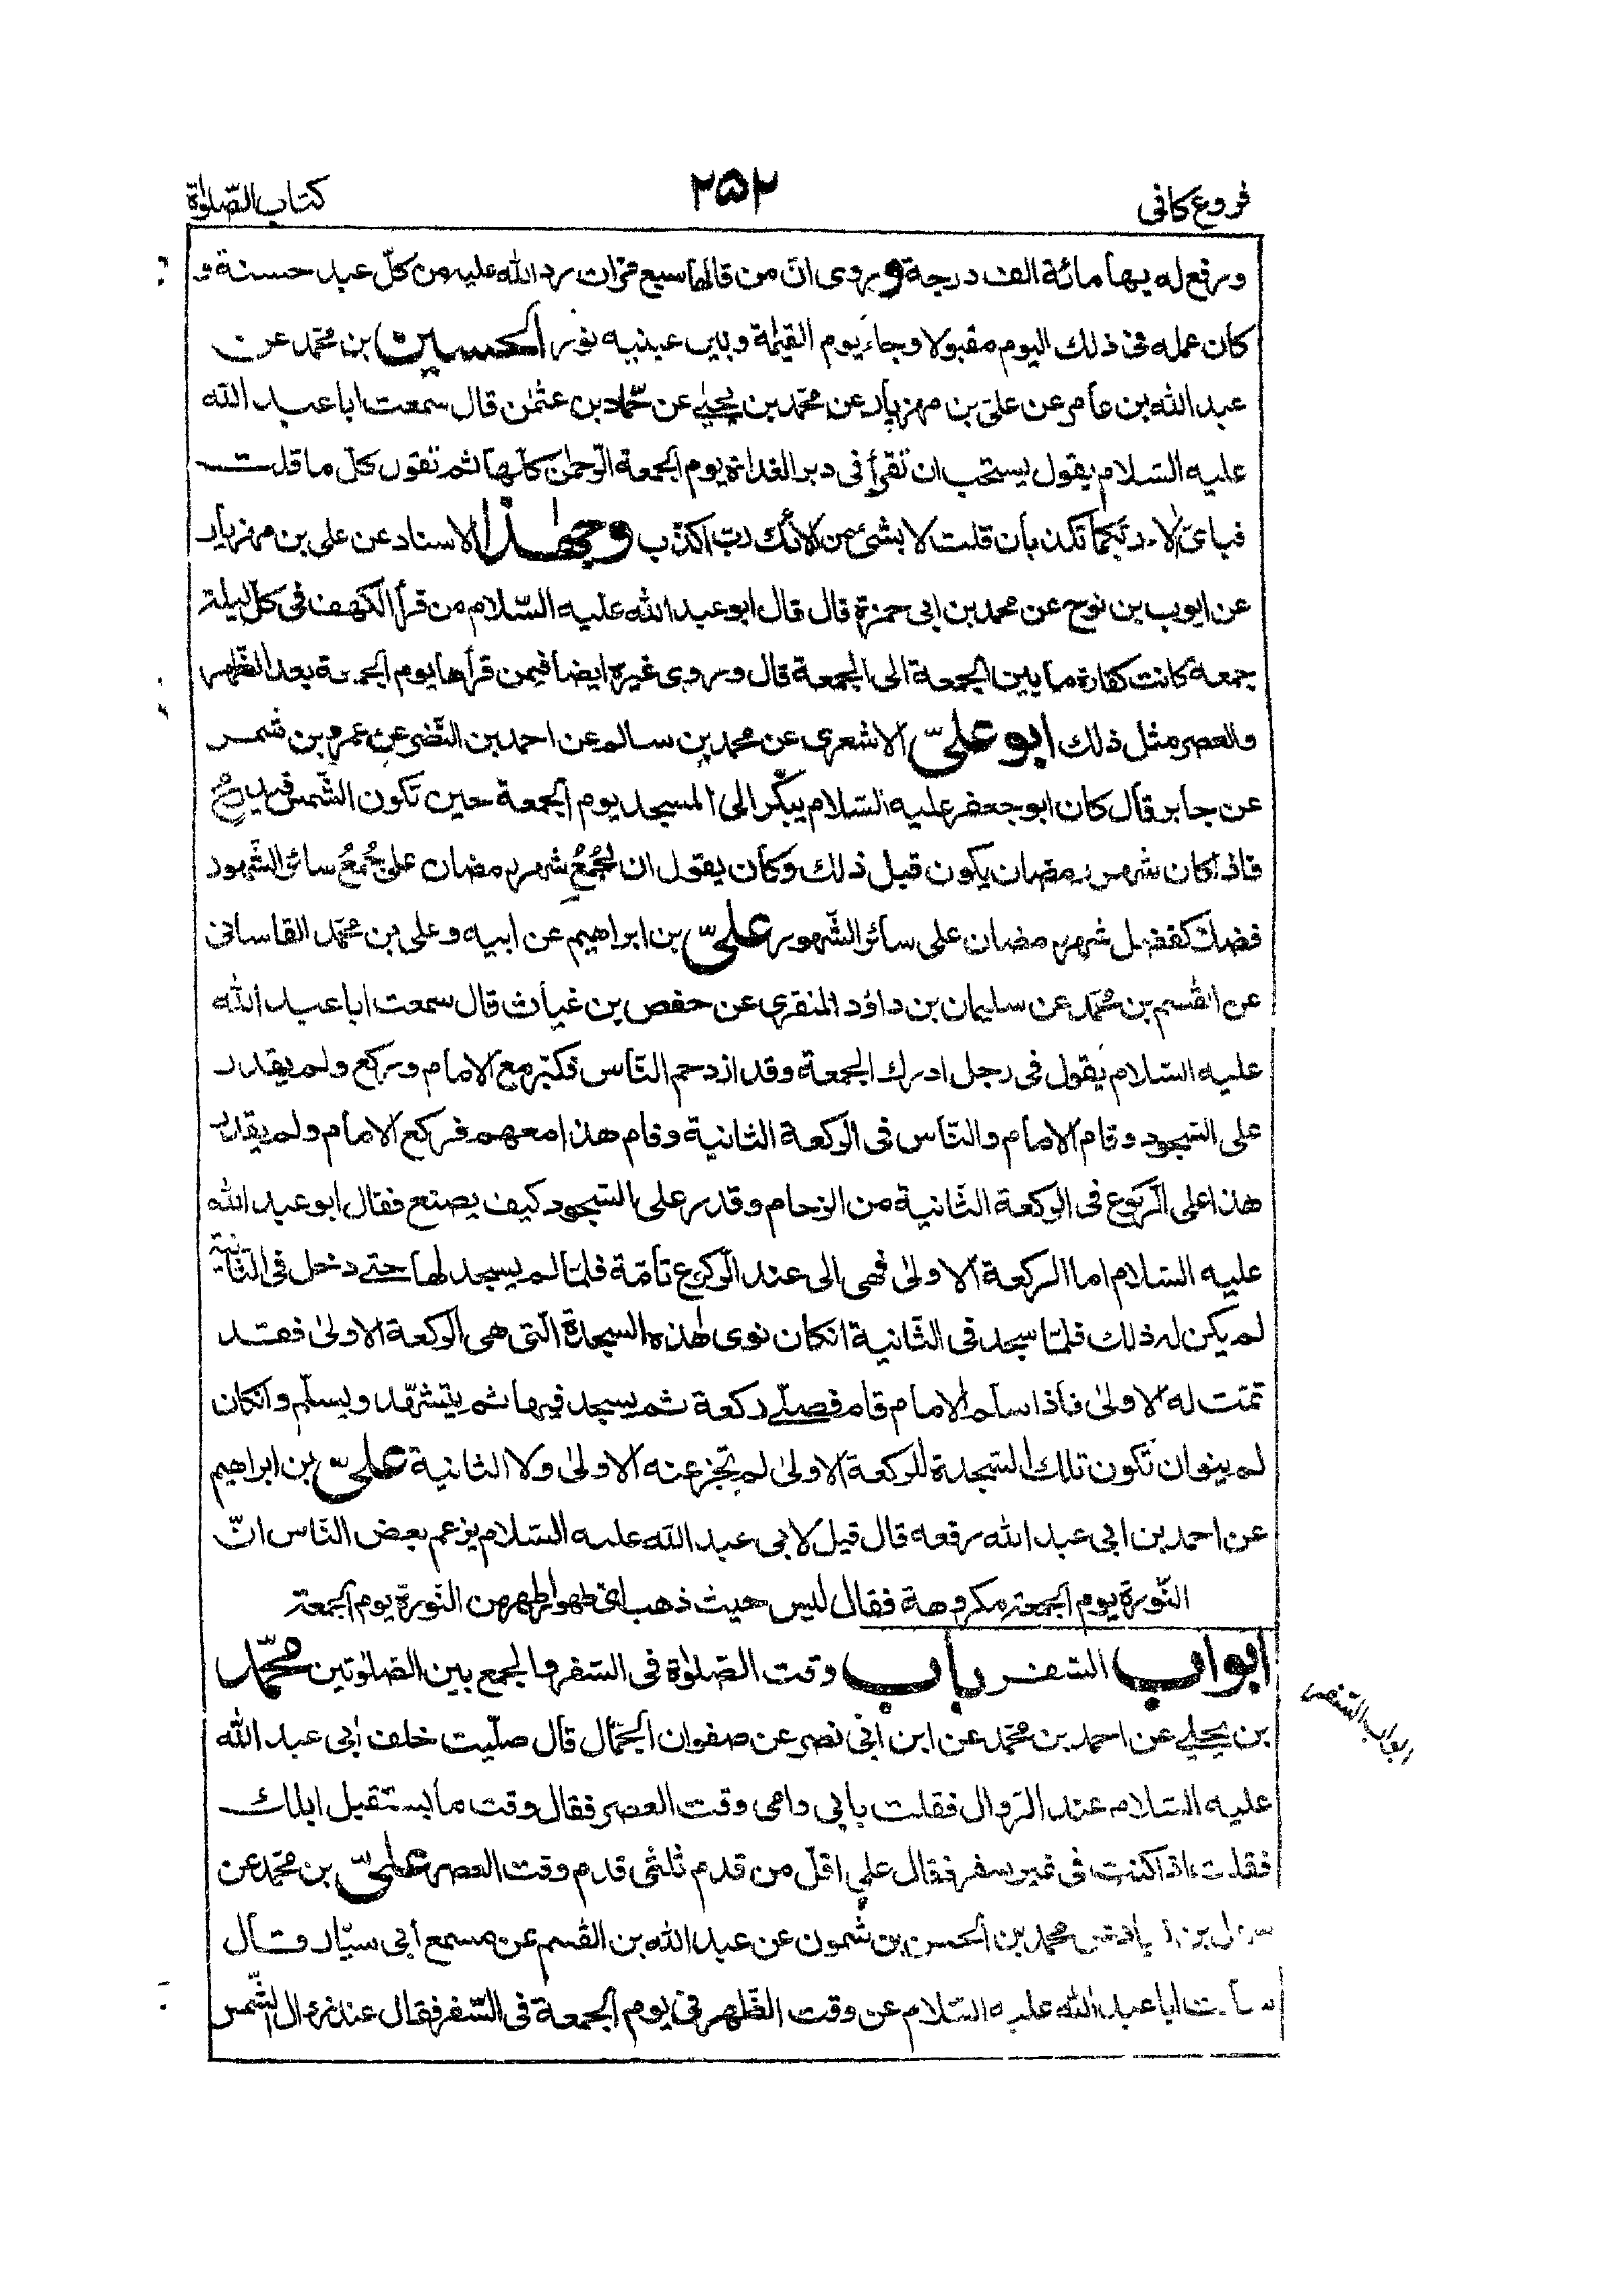 فروع كافى
۲۵۲
كتاب الصّلوٰة
ورفع له بها مائة الف درجة وروى انّ من قالها سبع مرّات رد الله عليه من كلّ عبد حسنة و
كان عمله فى ذلك اليوم مقبولا وجاء يوم القيٰمة وبين عينيه نور الحسين بن محمّد عن
عبد الله بن عامر عن علىّ بن مهزيار عن محمّد بن يحيٰى عن حمّاد بن عثمٰن قال سمعت ابا عبد الله
عليه السّلام يقول يستحب ان تقرأ فى دبر الغداة يوم الجمعة الرّحمٰن كلّها ثم تقول كلّ ما قلت
فباىّ الاء ربّكما تكذبان قلت لا بشئ من الائك ربّ اكذّب وبهٰذا الاسناد عن على بن مهزيار
عن ايوب بن نوح عن محمد بن ابى حمزة قال قال ابو عبد الله عليه السّلام من قرأ الكهف فى كلّ ليلة
جمعة كانت كفارة ما بين الجمعة الى الجمعة قال وروى غيره ايضا فيمن قرأها يوم الجمعة بعد الظّهر
والعصر مثل ذلك ابو علىّ الاشعرى عن محمد بن سالم عن احمد بن النّضر عن عمرو بن شمر
عن جابر قال كان ابو جعفر عليه السّلام يبكّر الى المسجد يوم الجمعة حين تكون الشّمس قيد رمح
فاذا كان شهر رمضان يكون قبل ذلك وكان يقول ان لجُمَعِ شهر رمضان على جُمَعِ سائر الشّهور
فضلا كفضل شهر رمضان على سائر الشّهور علىّ بن ابراهيم عن ابيه وعلى بن محمّد القاسانى
عن القٰسم بن محمّد عن سليمان بن داؤد المنقرى عن حفص بن غياث قال سمعت ابا عبد الله
عليه السّلام يقول فى رجل ادرك الجمعة وقد ازدحم النّاس فكبّر مع الامام وركع ولم يقدر
على السّجود وقام الامام والنّاس فى الرّكعة الثانية وقام هذا معهم فركع الامام ولم يقدر
هذا على الرّكوع فى الركعة الثّانية من الزحام وقدر على السّجود كيف يصنع فقال ابو عبد الله
عليه السّلام اما الركعة الاولىٰ فهى الى عند الرّكوع تامّة فلمّا لم يسجد لها حتى دخل فى الثّانية
لم يكن له ذلك فلمّا سجد فى الثّانية انكان نوى هٰذه السجدة الّتى هى الرّكعة الاولىٰ فقد
تمّت له الاولىٰ فاذا سلّم الامام قام فصلّى ركعة ثم يسجد فيها ثم يتشهّد ويسلّم وانكان
لم ينو ان تكون تلك السّجدة للركعة الاولىٰ لم تجز عنه الاولىٰ ولا الثانية علىّ بن ابراهيم
عن احمد بن ابى عبد الله رفعه قال قيل لابى عبد الله عليه السّلام يزعم بعض النّاس انّ
النّورة يوم الجمعة مكروهة فقال ليس حيث ذهب اىّ طهور اطهر من النّورة يوم الجمعة
ابواب السّفر باب وقت الصّلوٰة فى السّفر والجمع بين الصّلوٰتين محمّد
بن يحيٰى عن احمد بن محمّد عن ابن ابى نصر عن صفوان الجمّال قال صلّيت خلف ابى عبد الله
عليه السّلام عند الزّوال فقلت بابى وامى وقت العصر فقال وقت ما يستقبل ابلك
فقلت اذا كنت فى غير سفر فقال على اقلّ من قدم ثلثى قدم وقت العصر علىّ بن محمّد عن
سهل بن زياد عن محمد بن الحسن بن شمون عن عبد الله بن القٰسم عن مسمع ابى سيّار قال
سألت ابا عبد الله عليه السّلام عن وقت الظّهر فى يوم الجمعة فى السّفر فقال عند زوال الشّمس
ابواب السّفر